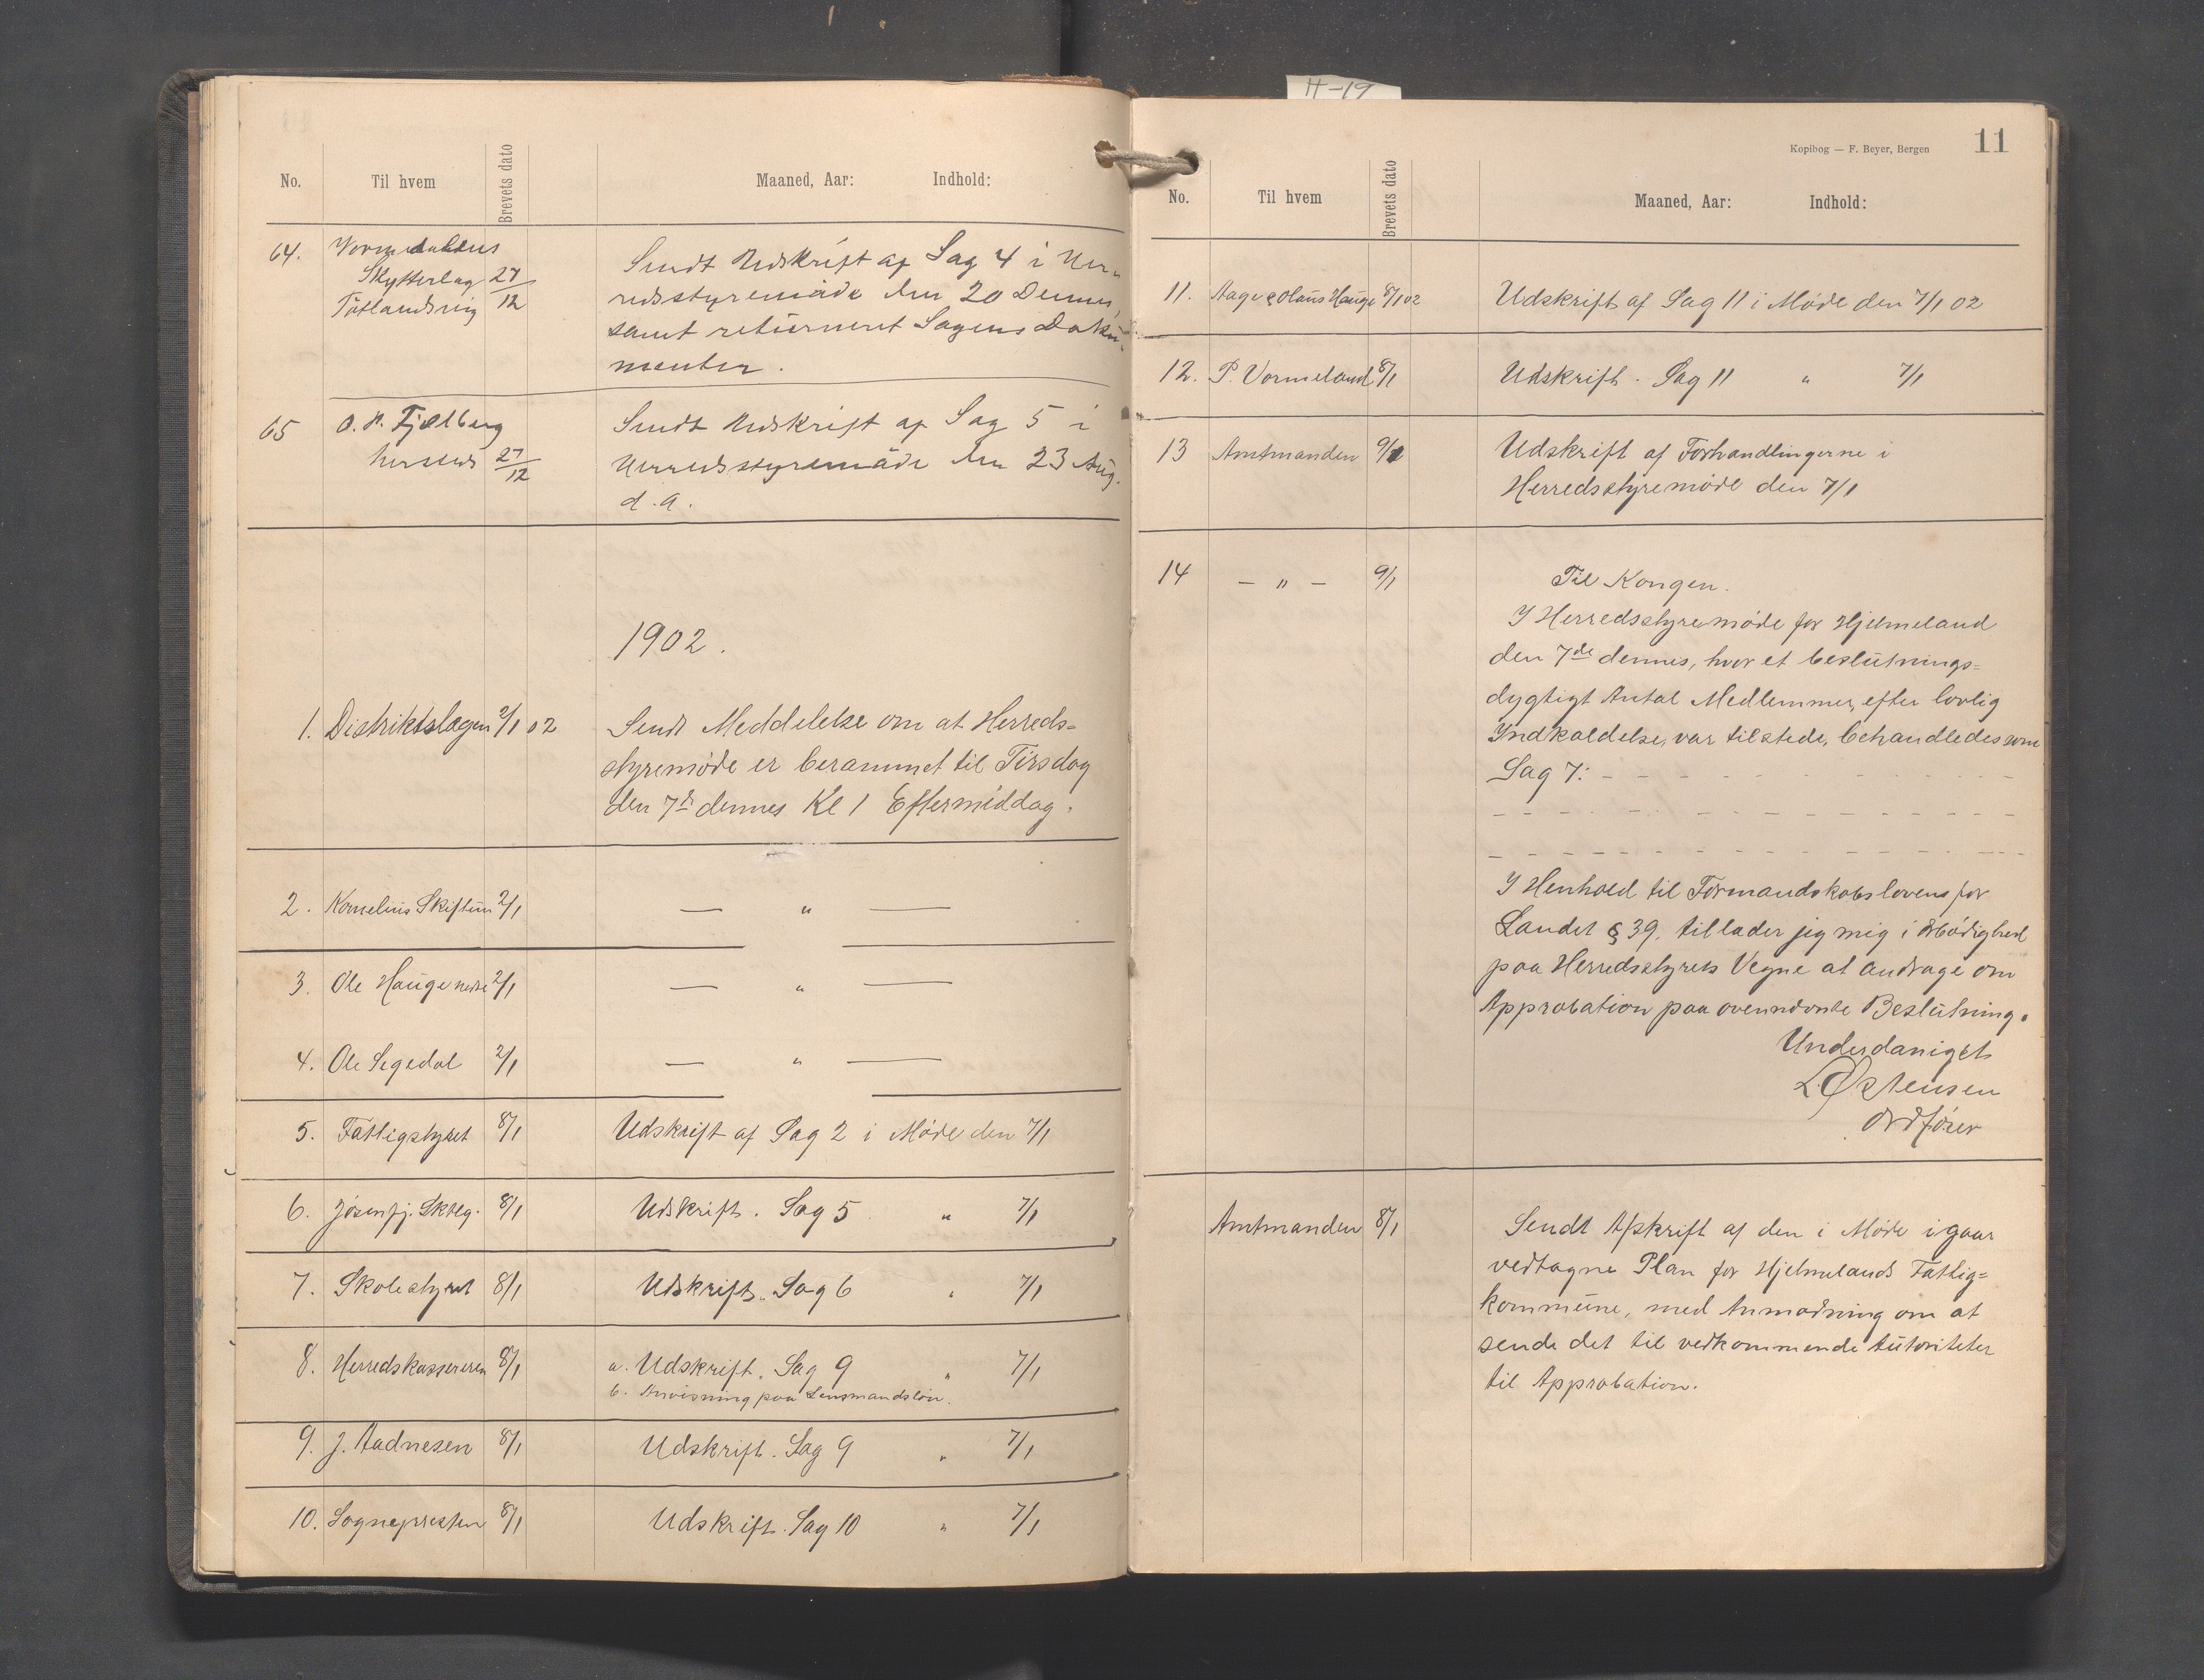 H-19
No. Til hvem Brevets dato Maaned, Aar: Indhold:
64. Vormedalens
Skytterlag 27/12
Tøtlandsvig
Sendt Udskrift af Sag 4 i Her-
redsstyremøde den 20 Dennes
samt retúrneret Sagens Doku-
menter.
65 O. H. Fjelberg
hersteds 27/12
Sendt Udskrift af Sag 5 i
Herredsstyremøde den 23 Aug.
d.a.
1902.
1. Distriktslægen 2/1 02 Sendt Meddelelse om at Herreds=
styremøde er berammet til Tirsdag
den 7de dennes Kl 1 Eftermiddag.
2. Kornelius Skiftun 2/1 — " —
3. Ole Hauge nedre 2/1 — " —
4. Ole Segedal 2/1 — " —
5. Fattigstyret 8/1 Udskrift af Sag 2 i Møde den 7/1
6. Jøsenfj. Skteg. 8/1 Udskrift. Sag 5 " 7/1
7. Skolestyret 8/1 Udskrift. Sag 6 " 7/1
8. Herredskassereren 8/1 a. Udskrift. Sag 9 " 7/1
b. Anvisning paa Lensmandsløn.
9. J. Aadnesen 8/1 Udskrift. Sag 9 " 7/1
10. Sognepresten 8/1 Udskrift. Sag 10 " 7/1
Kopibog — F. Beyer, Bergen 11
No. Til hvem Brevets dato Maaned, Aar: Indhold:
11. Aage & Olaus Hauge 8/1 02 Udskrift af Sag 11 i Møde den 7/1 02
12. P. Vormeland 8/1 Udskrift. Sag 11 " 7/1
13 Amtmanden 9/1 Udskrift af Forhandlingerne i
Herredsstyremøde den 7/1
14 — " — 9/1 Til Kongen.
I Herredsstyremøde for Hjelmeland
den 7de dennes, hvor et beslutnings=
dygtigt Antal Medlemmer, efter lovlig
Indkaldelse, var tilstede, behandledes som
Sag 7: - - - - - - - - - - -
- - - - - - - - - - - - -
- - - - - - - - - - - - -
I Henhold til Formandskabslovens for
Landet § 39, tillader jeg mig i Ærbødighed
paa Herredsstyrets Vegne at andrage om
Approbation paa ovennævnte Beslutning.
Underdanigst
L. Østensen
Ordfører
Amtmanden 8/1 Sendt Afskrift af den i Møde igaar
vedtagne Plan for Hjelmelands Fattig=
kommune, med Anmodning om at
sende det til vedkommende Autoriteter
til Approbation.